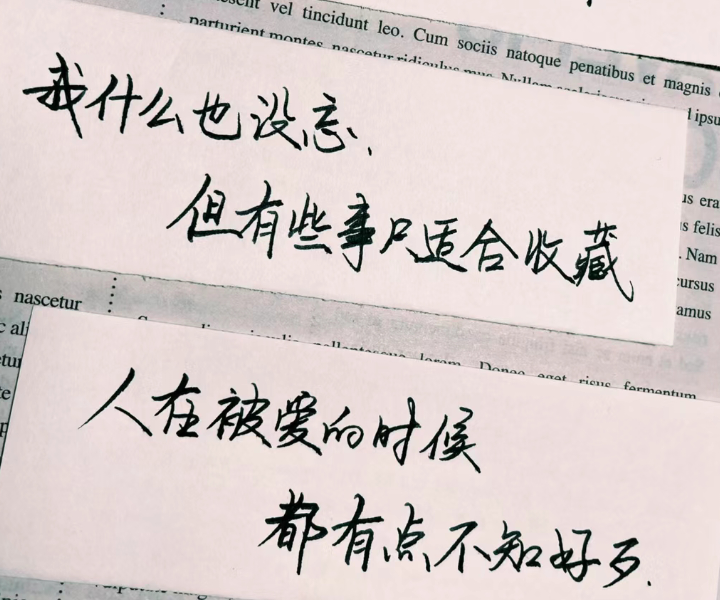 esent vel tincidunt leo. Cum sociis natoque penatibus et magnis
parturient montes, nascetur ridiculus mus. Nullam
我什么也没忘,
但有些事只适合收藏
ipsu
us era
s felis
. Nam
cursus
amus
nascetur
人在被爱的时候
都有点不知好歹.
pellentesque lorem. Donec eget risus fermentum